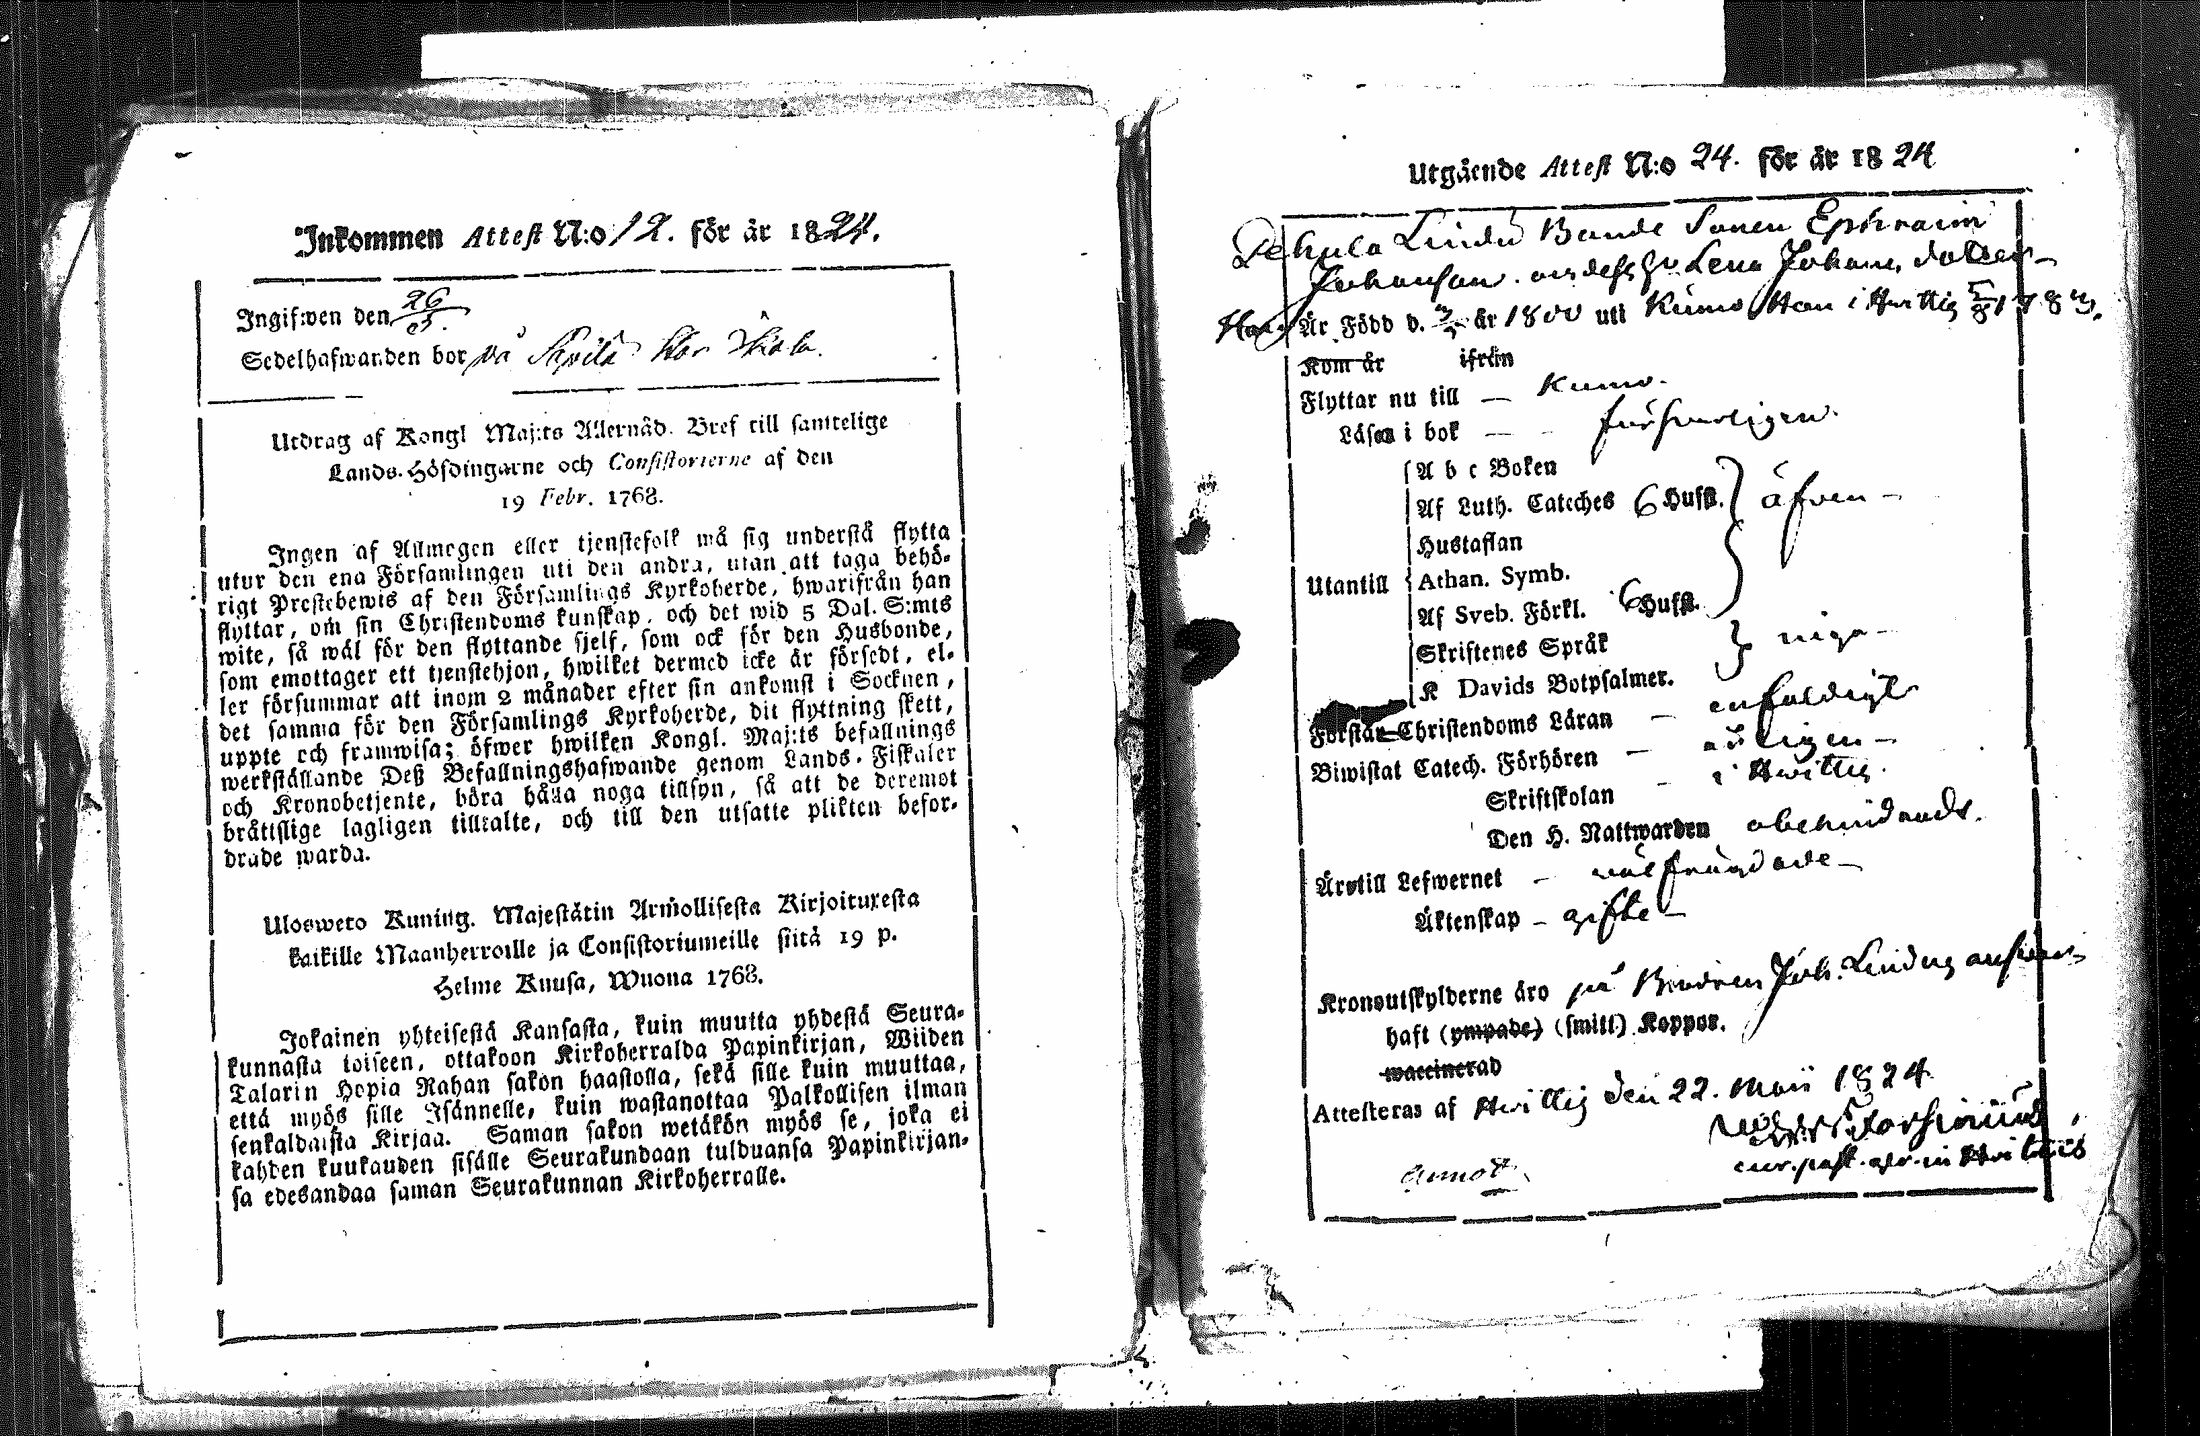 Inkommen Attest N:o 12. för år 1824.
Ingifwen den 26/5.
Sedelhafwanden bor på
Utdrag af Kongl Maj:ts Allernåd. Bref till samtelige
Lands-Höfdingarne och Consistorierne af den
19 Febr. 1768.
Ingen af Allmogen eller tjenstefolk må sig understå flytta
utur den ena Församlingen uti den andra, utan att taga behö-
rigt Prestebewis af den Församlings Kyrkoherde, hwarifrån han
flyttar, om sin Christendoms kunskap, och det wid 5 Dal. S:mts
wite, så wäl för den flyttande sjelf, som ock för den Husbonde,
som emottager ett tjenstehjon, hwilket dermed icke är försedt, el-
ler försummar att inom 2 månader efter sin ankomst i Socknen,
det samma för den Församlings Kyrkoherde, dit flyttning skett,
uppte och framwisa; öfwer hwilken Kongl. Maj:ts befallnings
werkställande Deß Befallningshafwande genom Lands-Fiskaler
och Kronobetjente, böra hålla noga tillsyn, så att de deremot
bråttslige lagligen tilltalte, och till den utsatte plikten befor-
drade warda.
Ulosweto Kuning. Majestätin Armollisesta Kirjoituxesta
kaikille Maanherroille ja Consistoriumeille siitä 19 p.
Helme Kuusa, Wuona 1768.
Jokainen yhteisestä Kansasta, kuin muutta yhdestä Seura-
kunnasta toiseen, ottakoon Kirkoherralda Papinkirjan, Wiiden
Talarin Hopia Rahan sakon haastolla, sekä sille kuin muuttaa,
että myös sille Isännelle, kuin wastanottaa Palkollisen ilman
senkaldaista Kirjaa. Saman sakon wetäkön myös se, joka ei
kahden kuukauden sisälle Seurakundaan tulduansa Papinkirjan-
sa edesandaa saman Seurakunnan Kirkoherralle.
Utgående Attest N:o 24. för år 1824
Bonde Sonen Ephraim
Johansson. Lena Johans dotter
Är Född d. år 1800 uti Kumo Han i Hvittis 1783.
Kom år ifrån
Flyttar nu till — Kumo.
Läsa i bok — — försvarligen.
Utantill
A b c Boken
Af Luth. Cateches 6 Hufst. äfven —
Hustaflan
Athan. Symb.
Af Sveb. Förkl. 6 Hufst.
Skriftenes Språk
K Davids Botpsalmer. några —
Förstår Christendoms Läran — enfaldigt
Biwistat Catech. Förhören — årligen —
Skriftskolan — i Hvittis.
Den H. Nattwarden obehindrade.
Äro till Lefwernet — välfrägdade —
Äktenskap — gifte —
Kronoutskylderne äro på Joh.
haft (ympade) (smitt) Koppor.
waccinerad
Attesteras af Hvittis den 22. Maii 1824
annot.